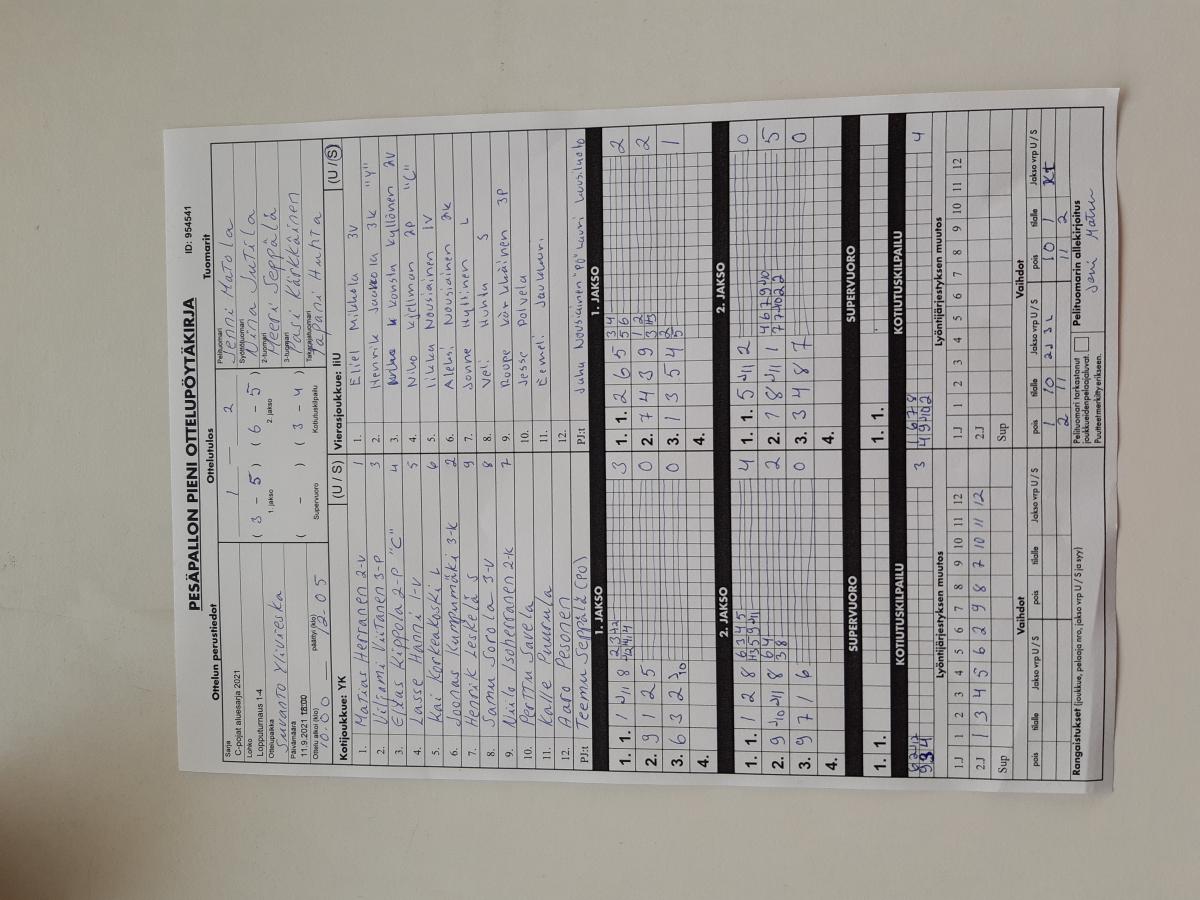 PESÄPALLON PIENI OTTELUPÖYTÄKIRJA
ID: 954541
Ottelun perustiedot
Ottelutulos
Tuomarit
Sarja
C-pojat aluesarja 2021
Lohko
Lopputurnaus 1-4
Ottelupaikka
Suvanto Ylivieska
Päivämäärä
11.9.2021 18:00
Ottelu alkoi (klo)
10.00
päättyi (klo)
12-05
1 — 2
( 3 - 5 ) ( 6 - 5 )
1. jakso 2. jakso
( - ) ( 3 - 4 )
Supervuoro Kotiutuskilpailu
Pelituomari
Jenni Matola
Syöttötuomari
Niina Jutila
2-tuomari
Meeri Seppälä
3-tuomari
Pasi Kärkkäinen
Takarajatuomari
Tapani Huhta
Kotijoukkue: YK (U / S)
1. Matias Herranen 2-V 1
2. Viljami Viitanen 3-P 3
3. Eljas Kippola 2-P "C" 4
4. Lasse Hanni 1-V 5
5. Kai Korkeakoski L 6
6. Joonas Kumpumäki 3-K 2
7. Henrik Leskelä S 9
8. Samu Sorola 3-V 8
9. Niilo Isoherranen 2-K 7
10. Perttu Savela
11. Kalle Puurula
12. Aaro Pesonen
PJ:t Teemu Seppälä (PO)
Vierasjoukkue: IilU (U / S)
1. Eliel Mikkola 3V
2. Henrik Jaakola 3K "Y"
3. Konsta Kyllönen 2V
4. Niko Kjellman 2P "C"
5. Iikka Nousiainen 1V
6. Aleksi Nousiainen 2K
7. Jonne Hyllinen L
8. Veli Huhta S
9. Roope Kärkkäinen 3P
10. Jesse Polvela
11. Eemeli Jaukkuri
12.
PJ:t Juha Nousiainen "PO" Lauri Kuusiluoto
1. JAKSO
1. 1. 1 J11 8 3
2. 9 1 2 5 0
3. 6 3 2 J10 0
4.
1. JAKSO
1. 1. 2 6 5 2
2. 7 4 3 9 2
3. 1 3 5 4 1
4.
2. JAKSO
1. 1. 1 2 8 4
2. 9 J10 J11 8 2
3. 9 7 1 6 0
4.
2. JAKSO
1. 1. 5 J11 2 0
2. 1 8 J11 1 5
3. 3 4 8 7 0
4.
SUPERVUORO
1. 1.
SUPERVUORO
1. 1.
KOTIUTUSKILPAILU
3
KOTIUTUSKILPAILU
4
Lyöntijärjestyksen muutos
1.J 1 2 3 4 5 6 7 8 9 10 11 12
2.J 1 3 4 5 6 2 9 8 7 10 11 12
Sup
Lyöntijärjestyksen muutos
1.J 1 2 3 4 5 6 7 8 9 10 11 12
2.J
Sup
Vaihdot
pois tilalle Jakso vrp U / S pois tilalle Jakso vrp U / S
Vaihdot
pois tilalle Jakso vrp U / S pois tilalle Jakso vrp U / S
1 10 2J 3 L 10 1 Kt
2 11 11 2
Rangaistukset (joukkue, pelaaja nro, jakso vrp U / S ja syy)
Pelituomari tarkastanut
joukkueidenpelaajaluvat.
Puutteetmerkittyerikseen.
Pelituomarin allekirjoitus